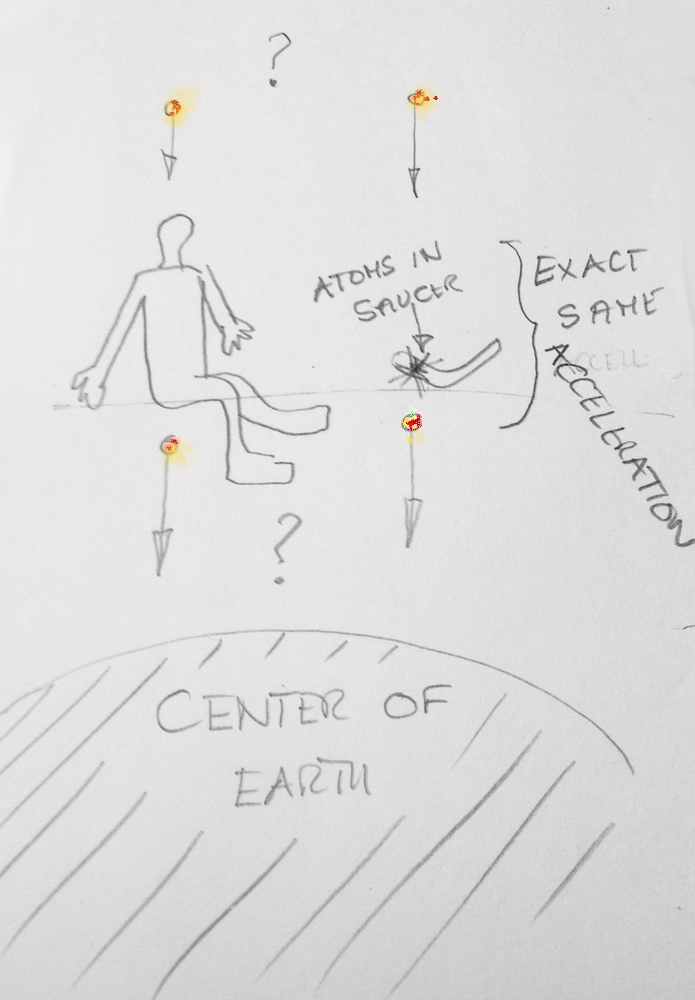 ?
ATOMS IN
SAUCER
EXACT
SAME
ACCELL.
ACCELERATION
?
CENTER OF
EARTH